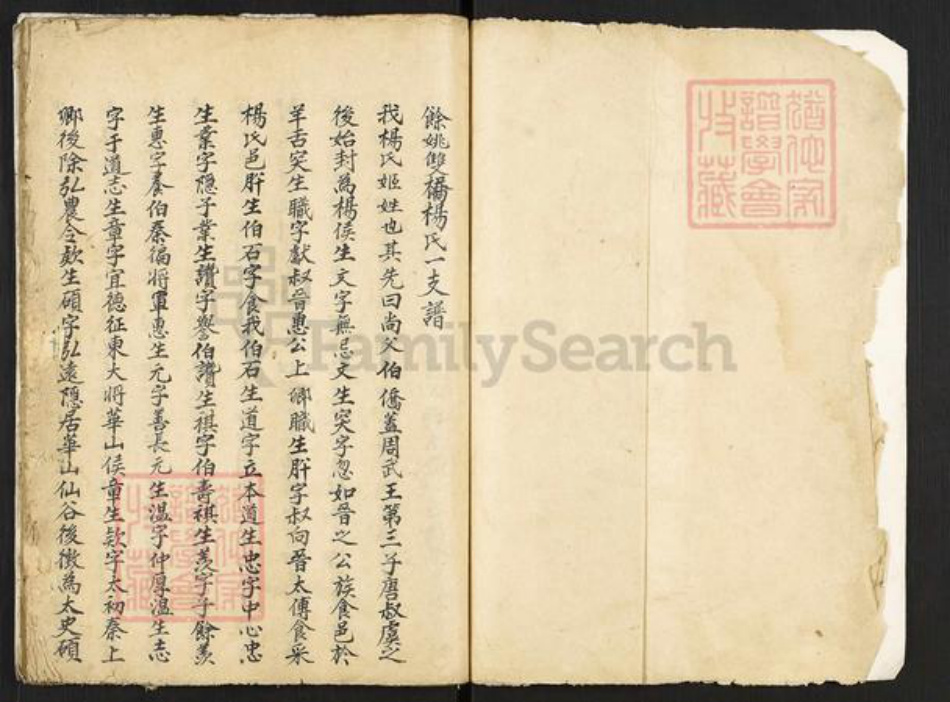 餘姚雙橋楊氏一支譜
我楊氏姬姓也其先曰尚父伯僑蓋周武王第三子唐叔虞之
後始封為楊侯生文字無忌文生突字忽如晉之公族食邑於
羊舌突生職字獻叔晉惠公上卿職生肸字叔向晉太傅食采
楊氏邑肸生伯石字食我伯石生道字立本道生忠字中心忠
生業字隱子業生讚字譽伯讚生祺字伯壽祺生羨字子餘羨
生惠字養伯秦偏將軍惠生元字善長元生溫字仲厚溫生志
字于道志生章字宜德征東大將華山侯章生款字太初秦上
卿後除弘農令款生碩字弘遠隱居華山仙谷後徵為太史碩
猶他家
譜學會
收藏
FamilySearch